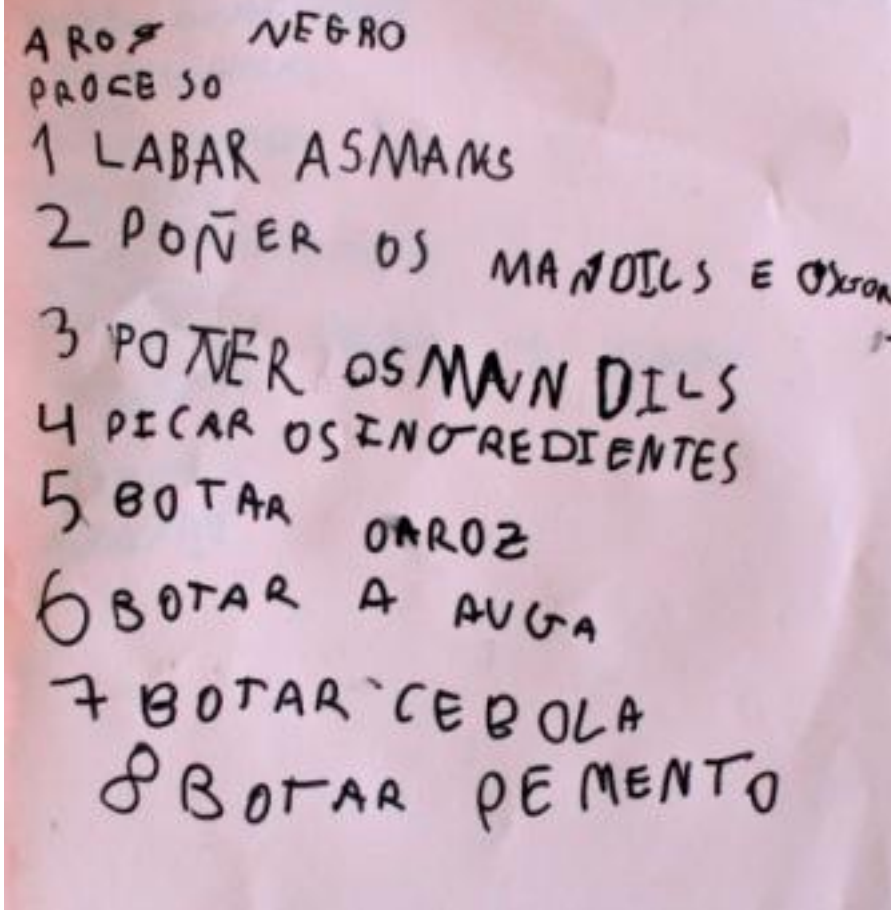 AROZ NEGRO
PROCESO
1 LABAR ASMANS
2 POÑER OS MANDILS E
3 POÑER OSMANDILS
4 PICAR OSINGREDIENTES
5 BOTAR OAROZ
6 BOTAR A AUGA
7 BOTAR CEBOLA
8 BOTAR PEMENTO